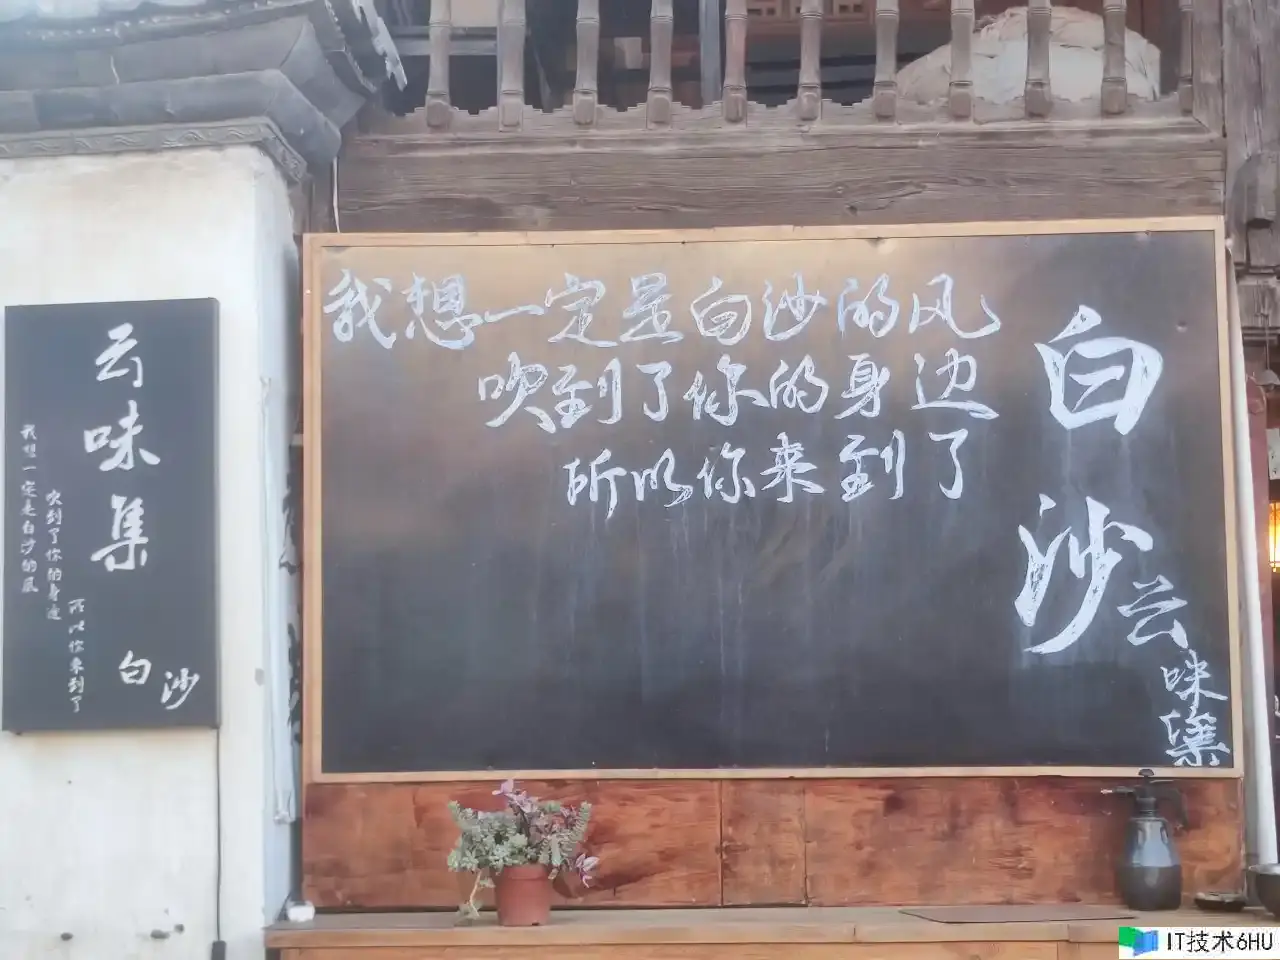 云味集
我想一定是白沙的风
吹到了你的身边
所以你来到了
白沙
我想一定是白沙的风
吹到了你的身边
所以你来到了
白沙
云味集
IT技术6HU